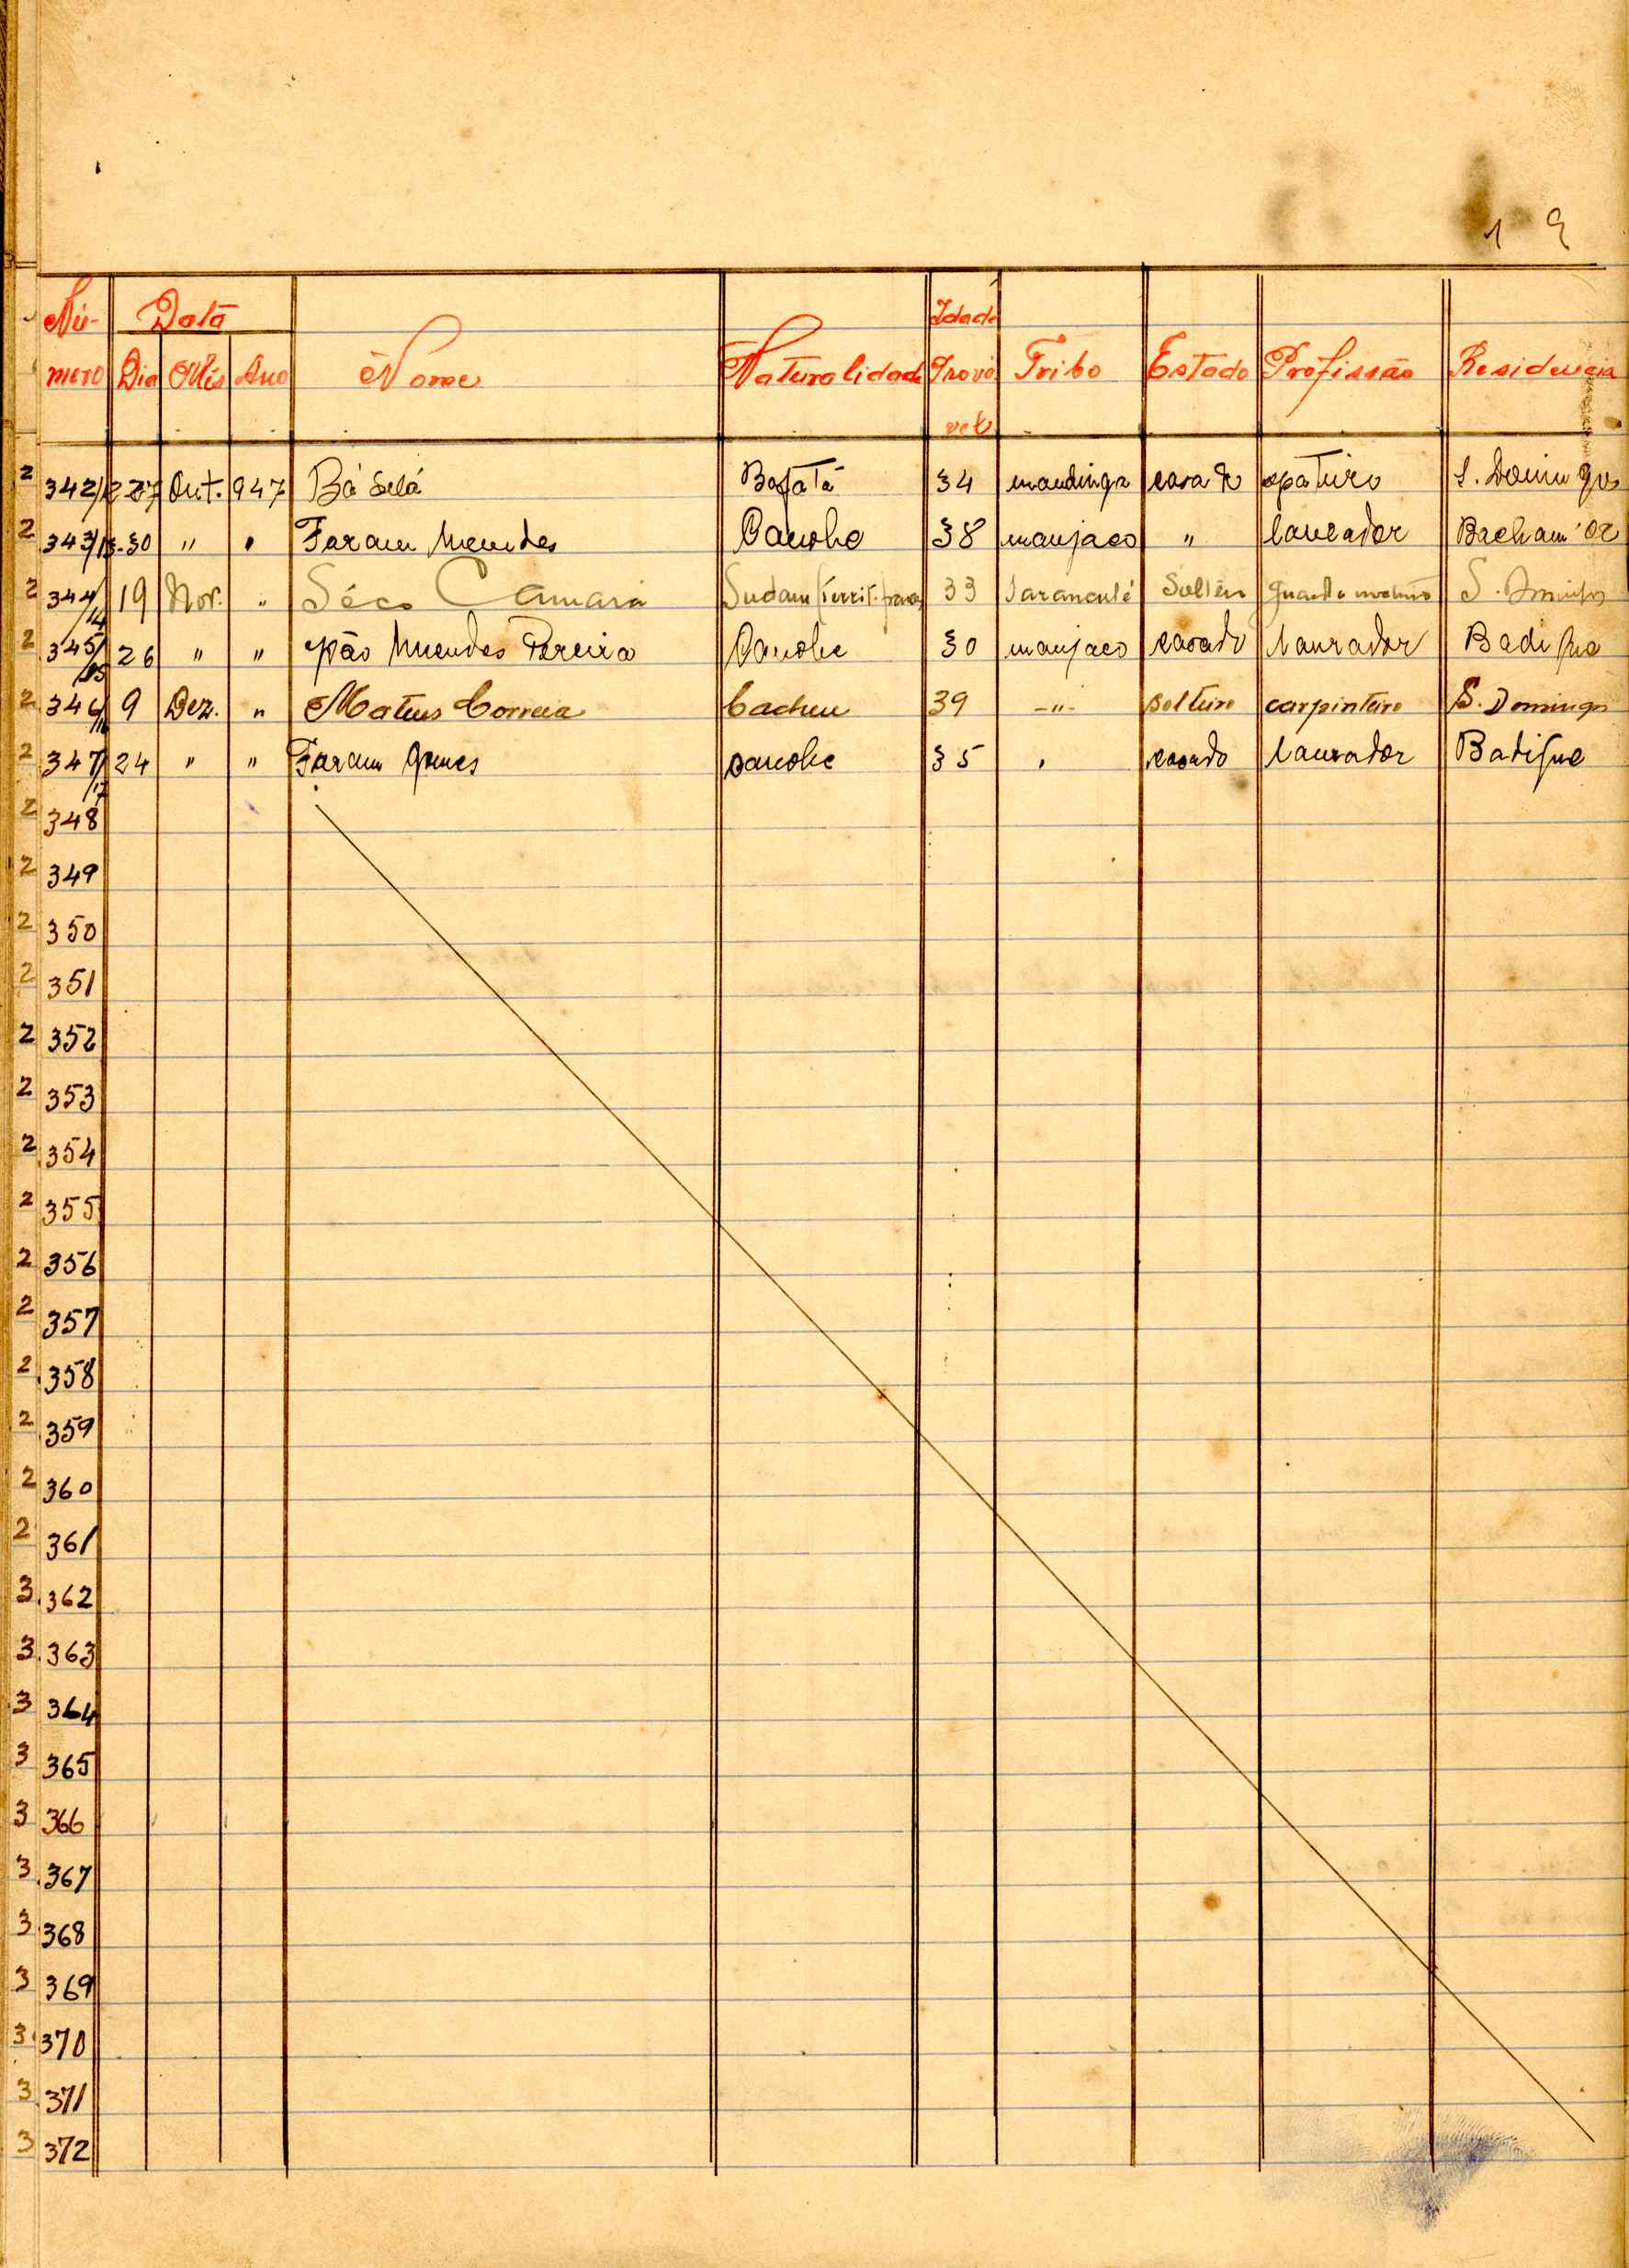 1 9
Nú- Data Idade
mero Dia Mês Ano Nome Naturalidade Prová Tribo Estado Profissão Residencia
vel
2 342/12 27 Out. 947 Bá Selá Bafatá 34 mandinga casado S. Domingos
2 343/13 30 " " Faram Mendes Canobe 38 manjaco " lavrador
2 344/14 19 Nov. " Séco Camará Sudam (Territ. francês) 33 Saranculé Solteiro guarda nocturno S. Domingos
2 345/15 26 " " João Mendes Pereira Canobe 30 manjaco casado lavrador
2 346/16 9 Dez. " Mateus Correia Cacheu 39 -"- solteiro carpinteiro S. Domingos
2 347/17 24 " " Faram Gomes canobe 35 " casado lavrador
2 348
2 349
2 350
2 351
2 352
2 353
2 354
2 355
2 356
2 357
2 358
2 359
2 360
2 361
3 362
3 363
3 364
3 365
3 366
3 367
3 368
3 369
3 370
3 371
3 372